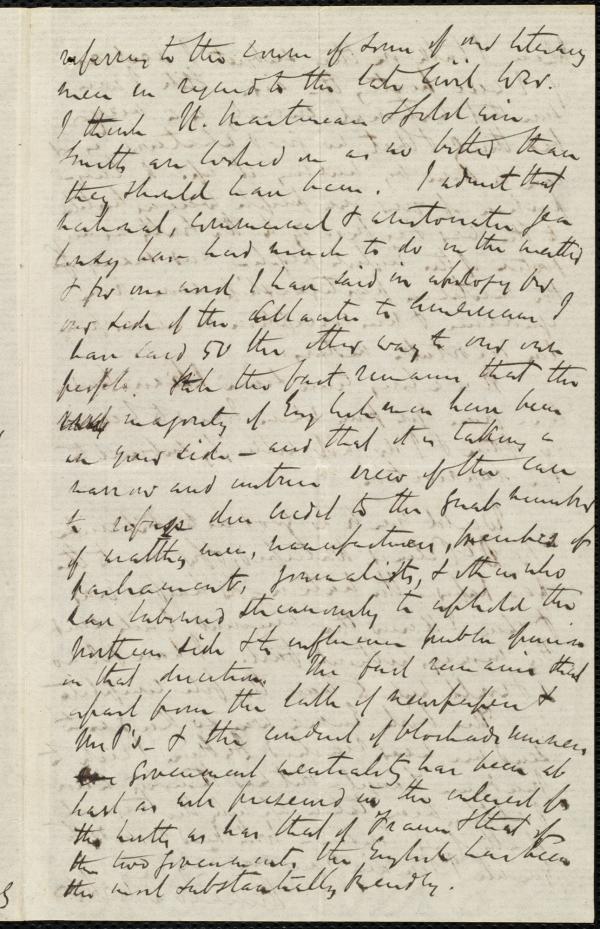 referring to the course of some of our literary
men in regard to the late Civil War.
I think H. Martineau & Goldwin
Smith are looked on as no better than
they should have been. I admit that
national, commercial & aristocratic jea
lousy have had much to do in the matter
& for one word I have said in apology for
our side of the Atlantic to Americans I
have said 50 the other way to our own
people. Still the fact remains that the
majority of Englishmen have been
on your side - and that it is taking a
narrow and untrue view of the case
to refuse due credit to the great number
of wealthy men, manufacturers, members of
parliament, journalists, & others who
have laboured strenuously to uphold the
Northern side & to influence public opinion
in that direction. The fact remains that
apart from the talk of newspapers &
M.P's - & the conduct of blockade runners
our government neutrality has been at
least as well preserved in the interest of
the north as has that of France & that of
the two governments the English has been
the most substantially friendly.